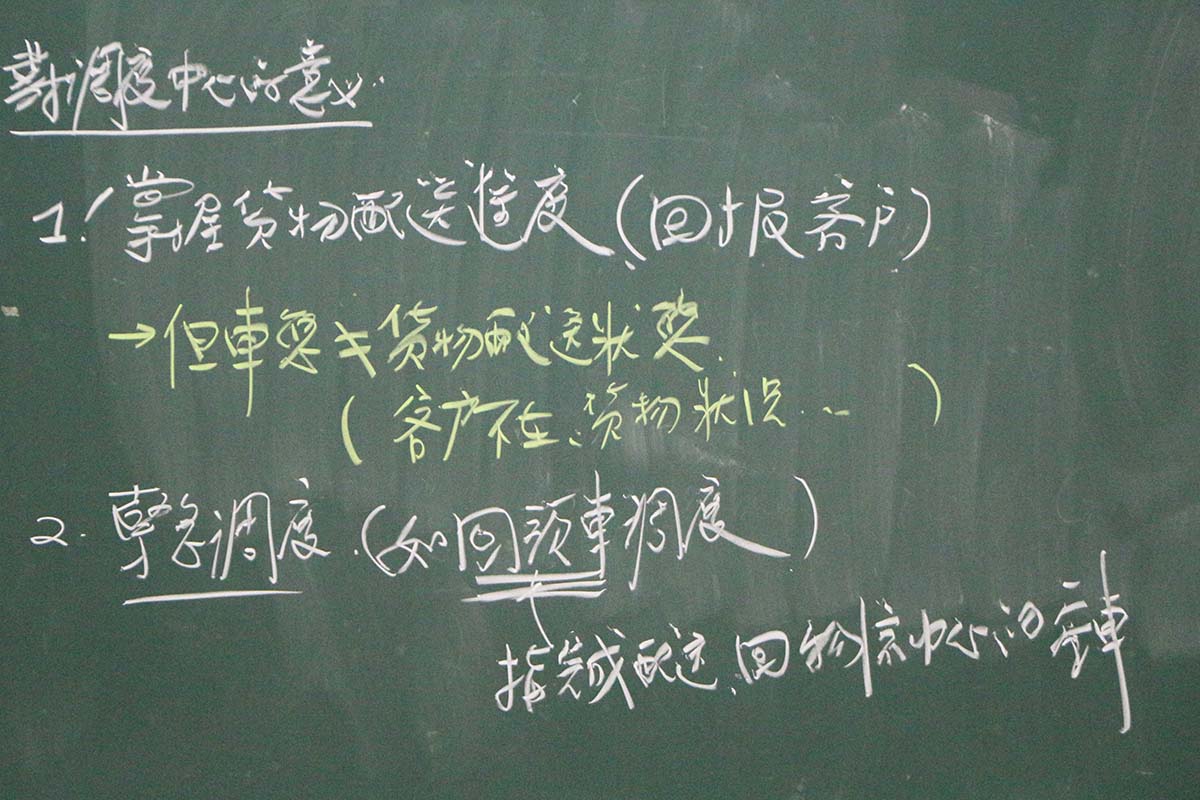 對調度中心的意义
1. 掌握貨物配送進度(回報客户)
→但車要
貨物配送狀態
(客户不在、貨物狀况...)
2. 緊急調度(如回頭車調度)
指完成配送,回物流中心的空車